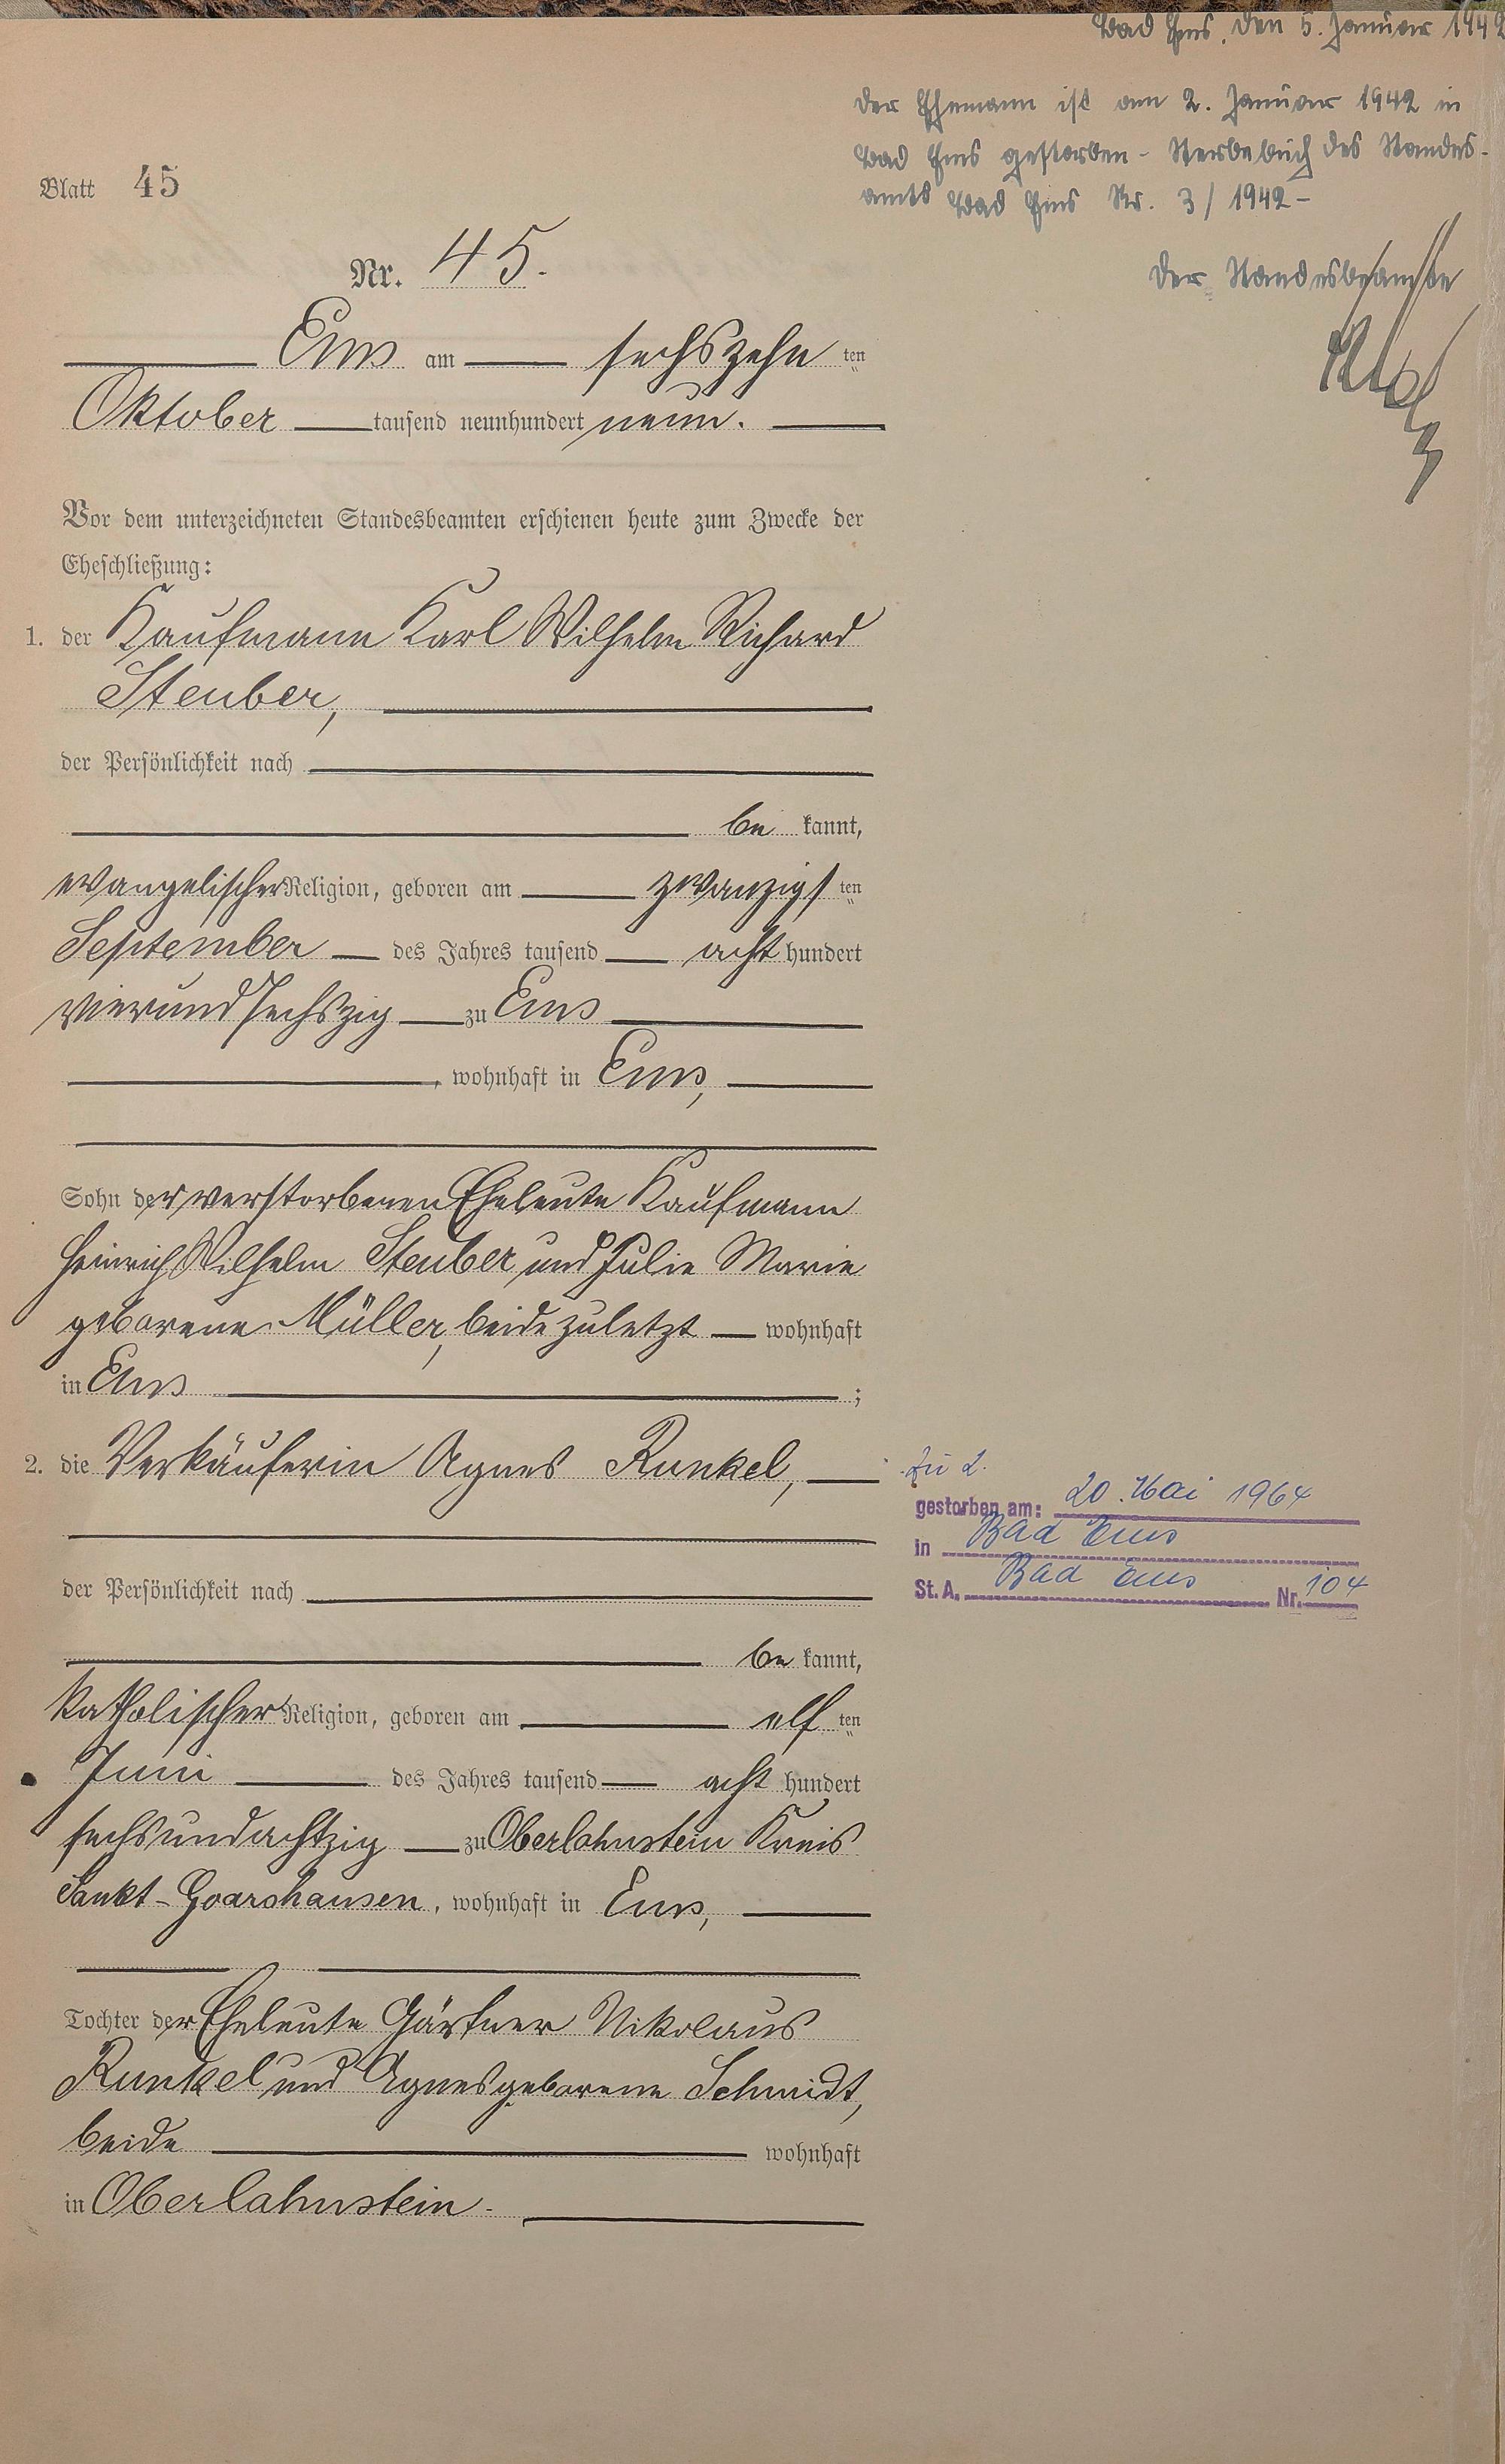 Bad Ems, den 5. Januar 1942
Der Ehemann ist am 2. Januar 1942 in
Bad Ems gestorben - Sterbebuch des Standes-
amts Bad Ems Nr. 3 / 1942 -
Der Standesbeamte
Blatt 45
Nr. 45.
Ems am sechszehn ten
Oktober tausend neunhundert neun.
Vor dem unterzeichneten Standesbeamten erschienen heute zum Zwecke der
Eheschließung:
1. der Kaufmann Karl Wilhelm Richard
Steuber,
der Persönlichkeit nach
be kannt,
evangelischer Religion, geboren am zwanzigs ten
September des Jahres tausend acht hundert
vierundsechszig zu Ems
, wohnhaft in Ems,
Sohn der verstorbenen Eheleute Kaufmann
Heinrich Wilhelm Steuber und Julie Marie
geborene Müller, beide zuletzt wohnhaft
in Ems ;
2. die Verkäuferin Agnes Runkel,
zu 2.
gestorben am: 20. Mai 1964
in Bad Ems
St. A. Bad Ems Nr. 104
der Persönlichkeit nach
be kannt,
katholischer Religion, geboren am elf ten
Juni des Jahres tausend acht hundert
sechsundachtzig zu Oberlahnstein Kreis
Sankt-Goarshausen, wohnhaft in Ems,
Tochter der Eheleute Gärtner Nikolaus
Runkel und Agnes geborene Schmidt,
beide wohnhaft
in Oberlahnstein.